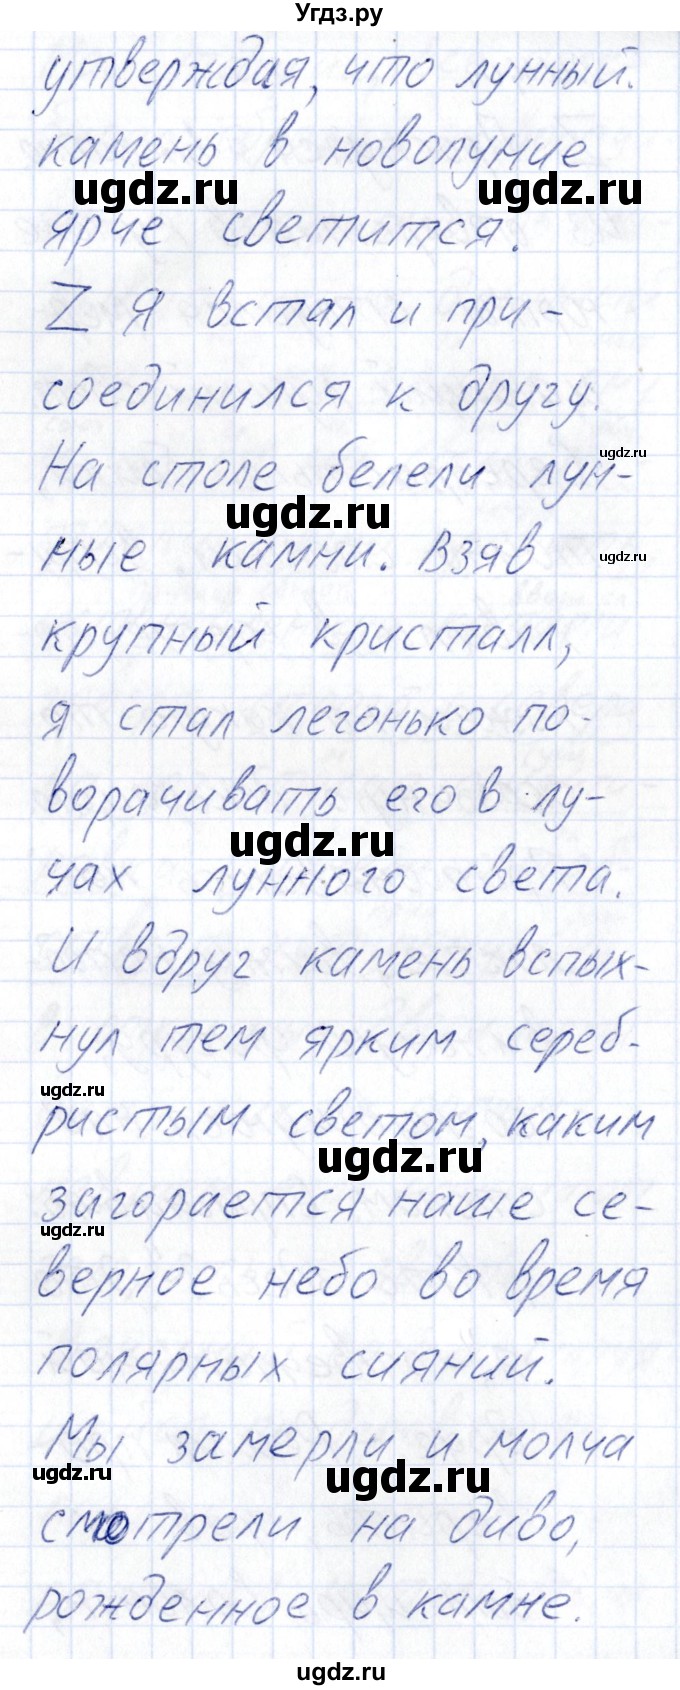 Угдз.ру
утверждая, что лунный
камень в новолуние
ugdz.ru ugdz.ru
ярче светится.
Z Я встал и при-
соединился к другу.
ugdz.ru
На столе белели лун-
ugdz.ru
ные камни. Взяв
ugdz.ru
крупный кристалл,
я стал легонько по-
ворачивать его в лу-
ugdz.ru
чах лунного света.
И вдруг камень вспых-
нул тем ярким сереб-
ugdz.ru
ристым светом, каким
ugdz.ru
загорается наше се-
ugdz.ru
верное небо во время
полярных сияний.
Мы замерли и молча
ugdz.ru ugdz.ru
смотрели на диво,
рожденное в камне.
ugdz.ru